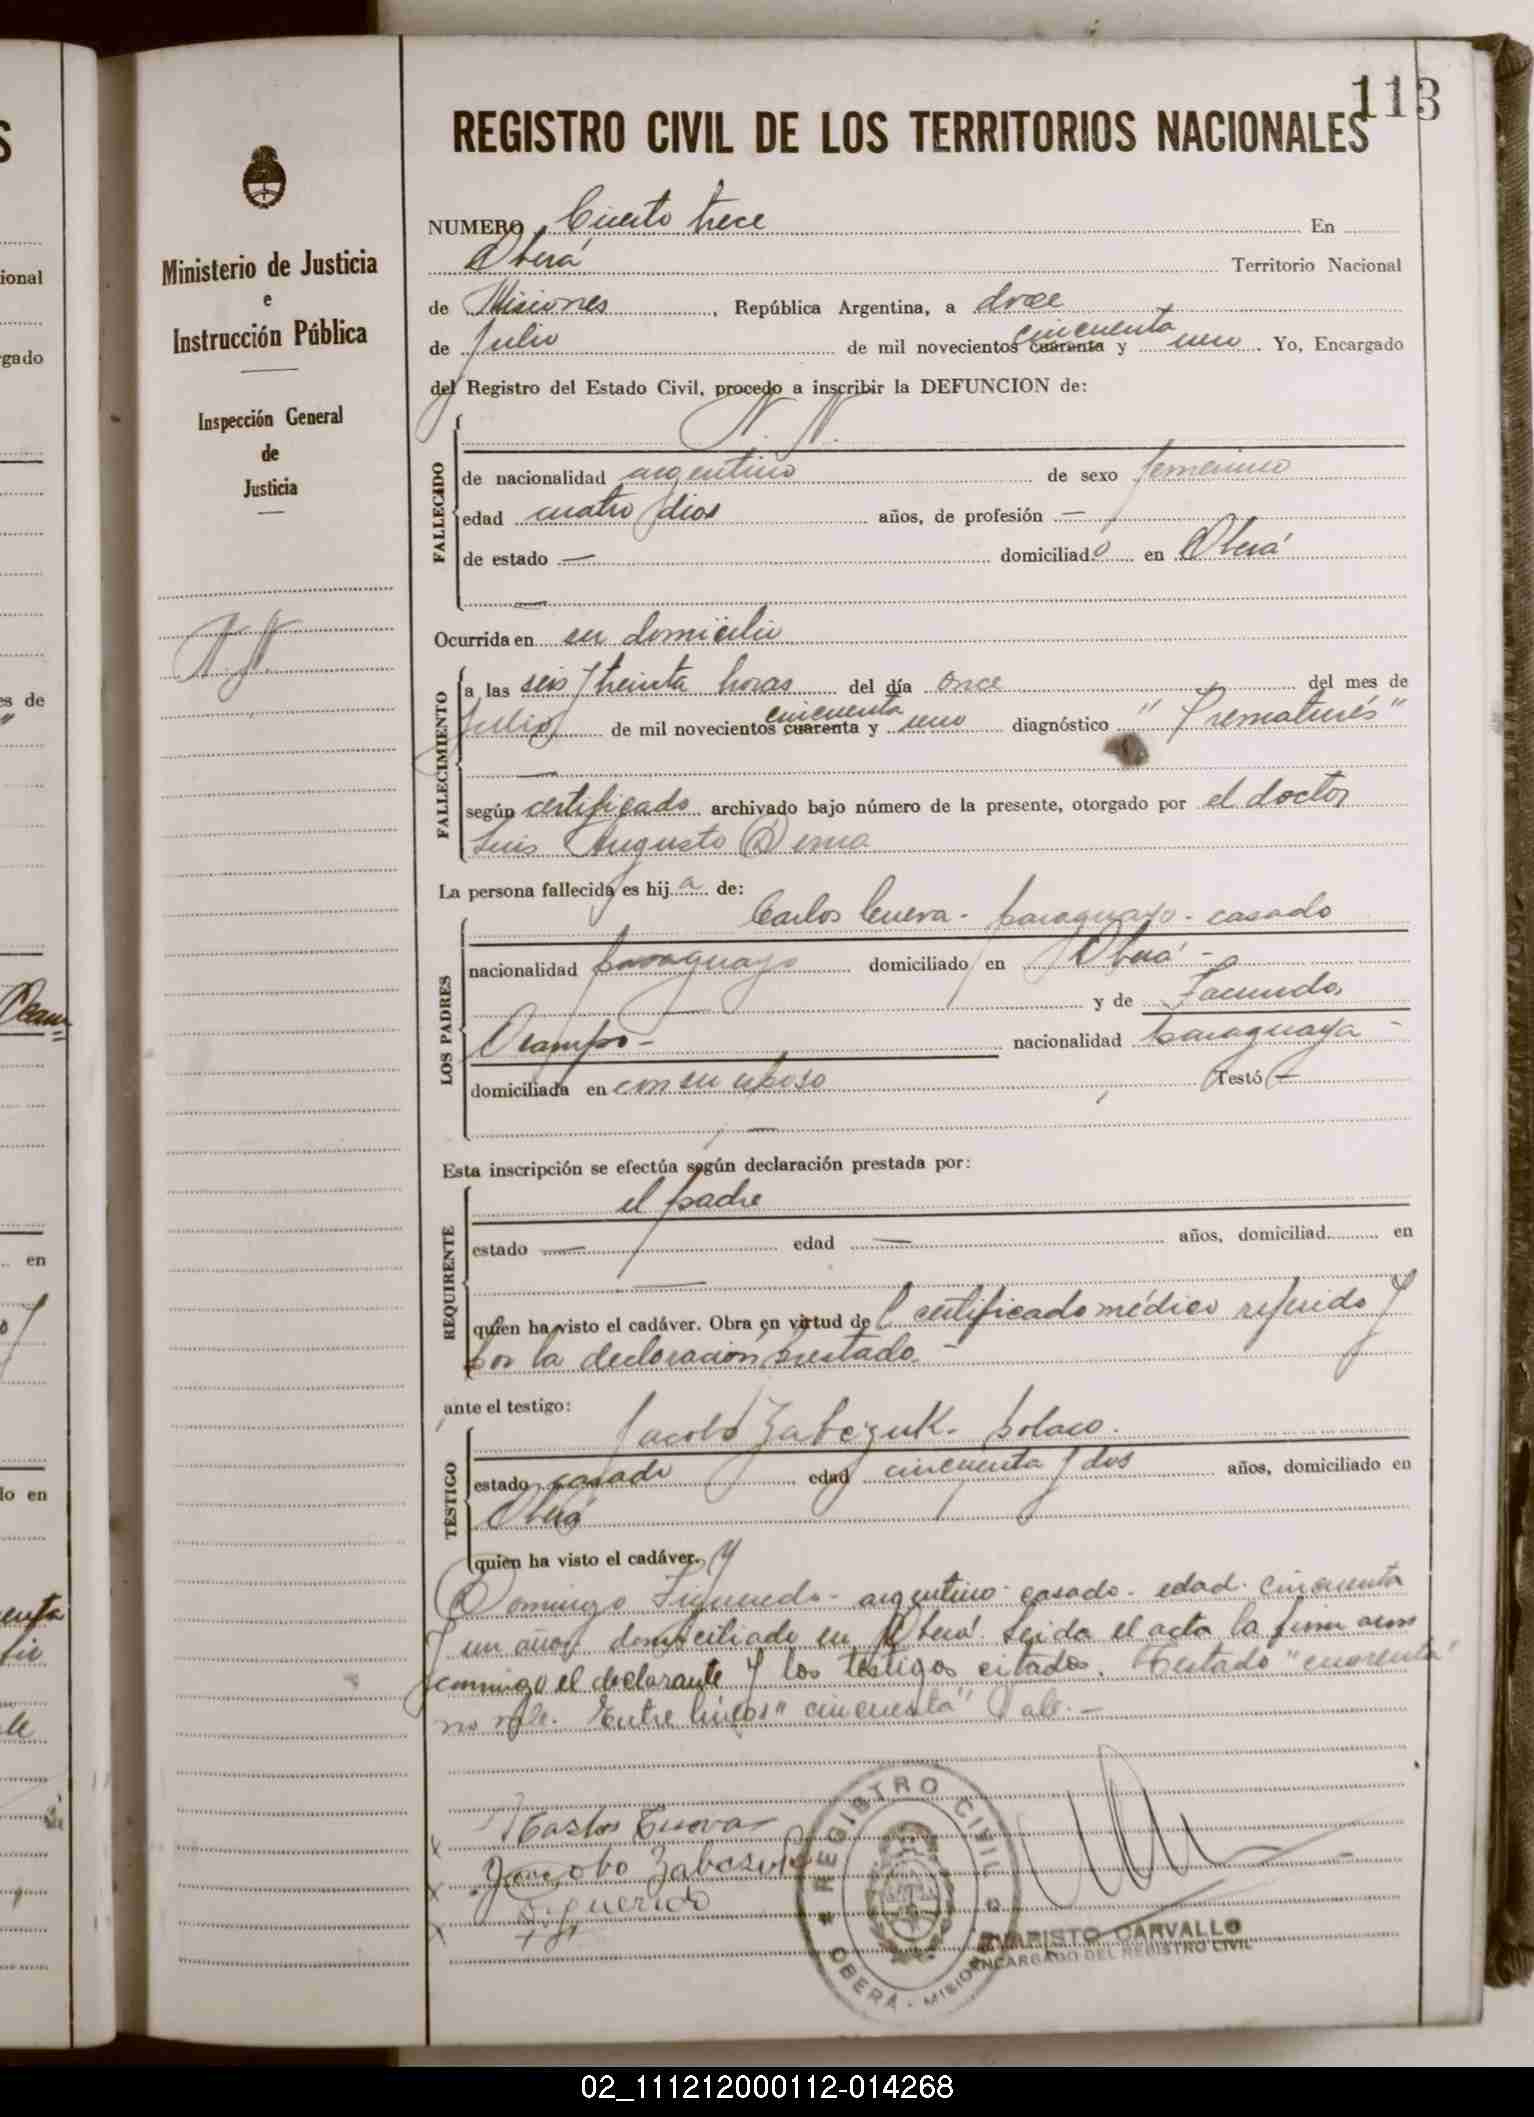 113
REGISTRO CIVIL DE LOS TERRITORIOS NACIONALES
Ministerio de Justicia
e
Instrucción Pública
Inspección General
de
Justicia
N. N.
NUMERO Ciento trece En
Oberá Territorio Nacional
de Misiones, República Argentina, a doce
de Julio de mil novecientos cuarenta cincuenta y uno. Yo, Encargado
del Registro del Estado Civil, procedo a inscribir la DEFUNCION de:
FALLECIDO
N. N.
de nacionalidad argentino de sexo femenino
edad cuatro dias años, de profesión —
de estado — domiciliado en Oberá
—
Ocurrida en su domicilio
FALLECIMIENTO
a las seis y treinta horas del día once del mes de
Julio de mil novecientos cuarenta cincuenta y uno diagnóstico "Prematurés"
—
según certificado archivado bajo número de la presente, otorgado por el doctor
Luis Augusto Derna
La persona fallecida es hija de:
LOS PADRES
Carlos Cueva - paraguayo - casado
nacionalidad paraguayo domiciliado en Oberá -
— y de Facunda
Ocampo - nacionalidad paraguaya -
domiciliada en con su esposo Testó —
—
Esta inscripción se efectúa según declaración prestada por:
REQUIRENTE
el padre
estado — edad — años, domiciliad en
—
quien ha visto el cadáver. Obra en virtud del certificado médico referido y
por la declaración prestada. -
ante el testigo:
TESTIGO
Jacobo Zabczuk - polaco.
estado casado edad cincuenta y dos años, domiciliado en
Oberá
quien ha visto el cadáver. y
Domingo Figueredo - argentino - casado - edad - cincuenta
y un años, domiciliado en Oberá. Leida el acta la firman
conmigo el declarante y los testigos citados. Testado "cuarenta"
no vale. Entre líneas "cincuenta" Vale. -
x Carlos Cueva
x Jacobo Zabczuk
x Figueredo
REGISTRO CIVIL
OBERÁ - MISIONES
EVARISTO CARVALLO
ENCARGADO DEL REGISTRO CIVIL
02_111212000112-014268